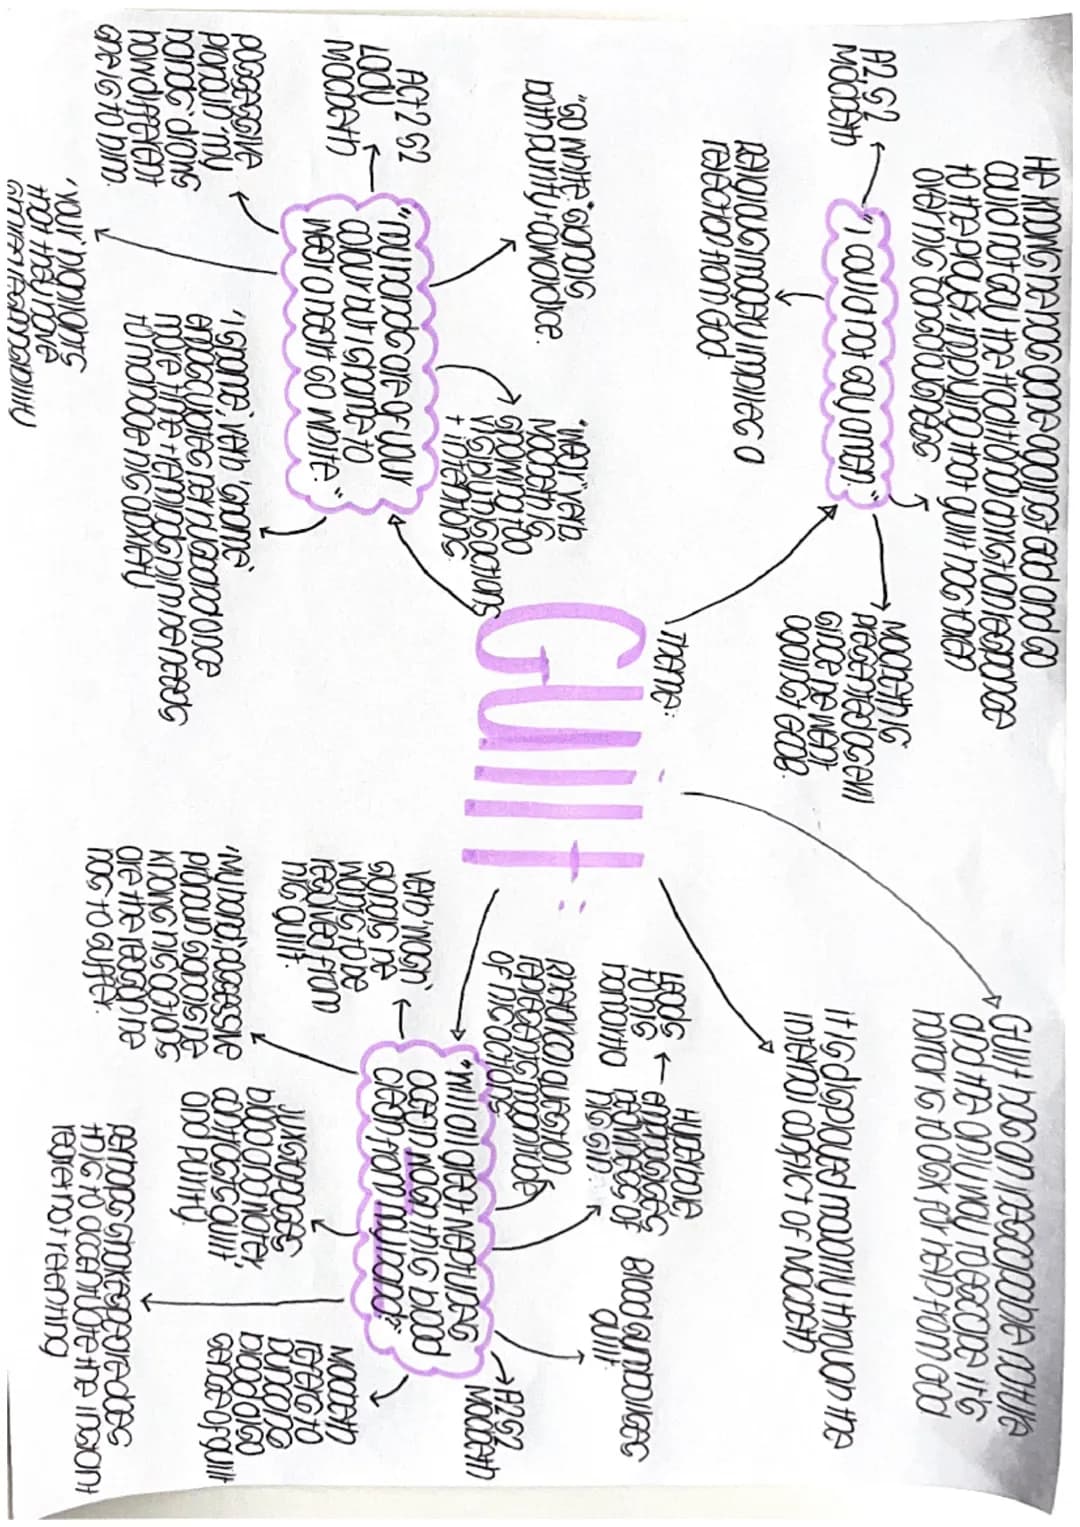 He knows he has gone against God and so
could not say the traditional christian response
to the prayer, implying that guilt has taken
over his consciousness
A2 S2
Macbeth
"I could not say amen."
Religious imagery implies a
rejection from God
Macbeth is
presented as evil
since he went
against God.
Theme:
Guilt:
Guilt has an inescapable nature
and the only way to escape it is
to ask for help from God
It is displayed mainly through the
internal conflict of Macbeth
"Go white" shows
both purity + cowardice.
Act 2 S2
Lady
Macbeth
"My hands are of your
colour but I shame to
wear a heart so white."
"Wear" verb
Macbeth is
growing too
visibly in his actions
+ intentions
possessive
pronoun 'my
hands' shows
how different
she is to him.
'your' highlights
that they move
'I shame', verb 'shame'
emasculates
more time + reminds him he needs
to manage his anxiety
"Will all great Neptune's
ocean wash this blood
clean from my hand?"
A2 S2
Macbeth
Verb 'wash'
shows he
wants to be
resolved from
his guilt.
'My hand', possessive
pronoun shows he
knows his actions
are the reason he
has to suffer.
Rhetorical question
represents magnitude
of his actions
Hyperbole
emphasises
heaviness of
his sin
Leads
to his
hamartia
Blood symbolises
guilt
Juxtaposes
blood and water,
contrasts guilt
and purity
Perhaps Shakespeare does
this to accentuate the instant
regret not resenting
Macbeth
feels to
but some
blood also
sense of guilt